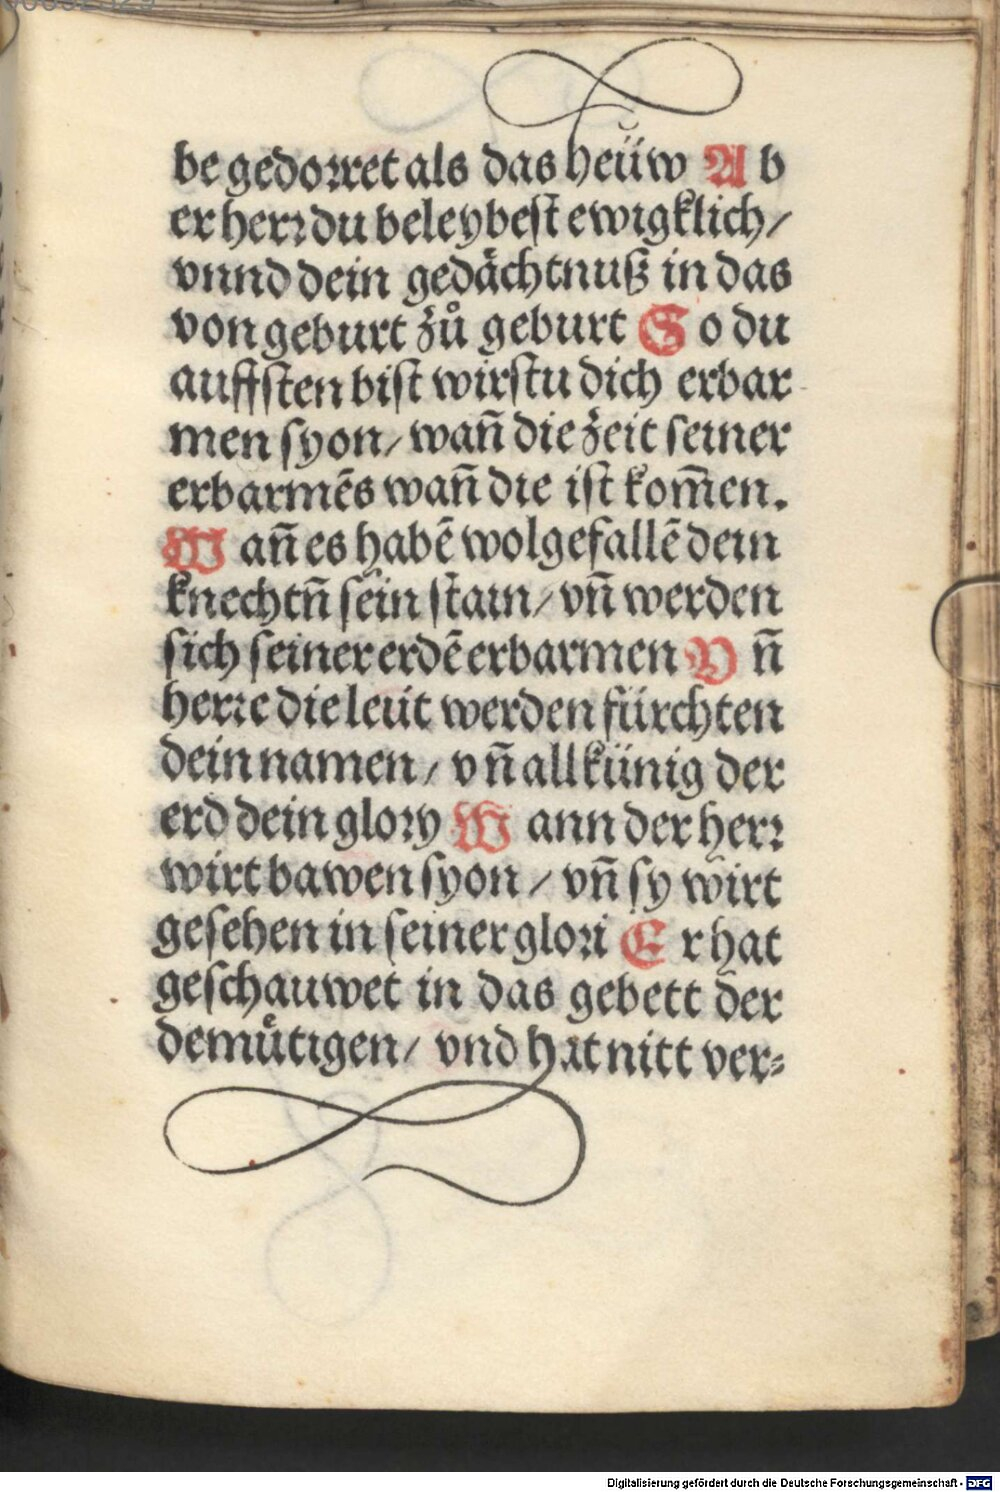 be gedorret als das heüw Ab
er herr du beleybest ewigklich/
vnnd dein gedächtnuß in das
von geburt zů geburt So du
auffsten bist wirstu dich erbar
men syon/ wañ die zeit seiner
erbarmēs wañ die ist kom̃en.
Wañ es habē wolgefallē dein
knechtñ sein stain/ vñ werden
sich seiner erdē erbarmen Vñ
herre die leüt werden fürchten
dein namen/ vñ all künig der
erd dein glory Wann der herr
wirt bawen syon/ vñ sy wirt
gesehen in seiner glori Er hat
geschauwet in das gebett der
demůtigen/ vnd hat nitt ver⸗
Digitalisierung gefördert durch die Deutsche Forschungsgemeinschaft - DFG